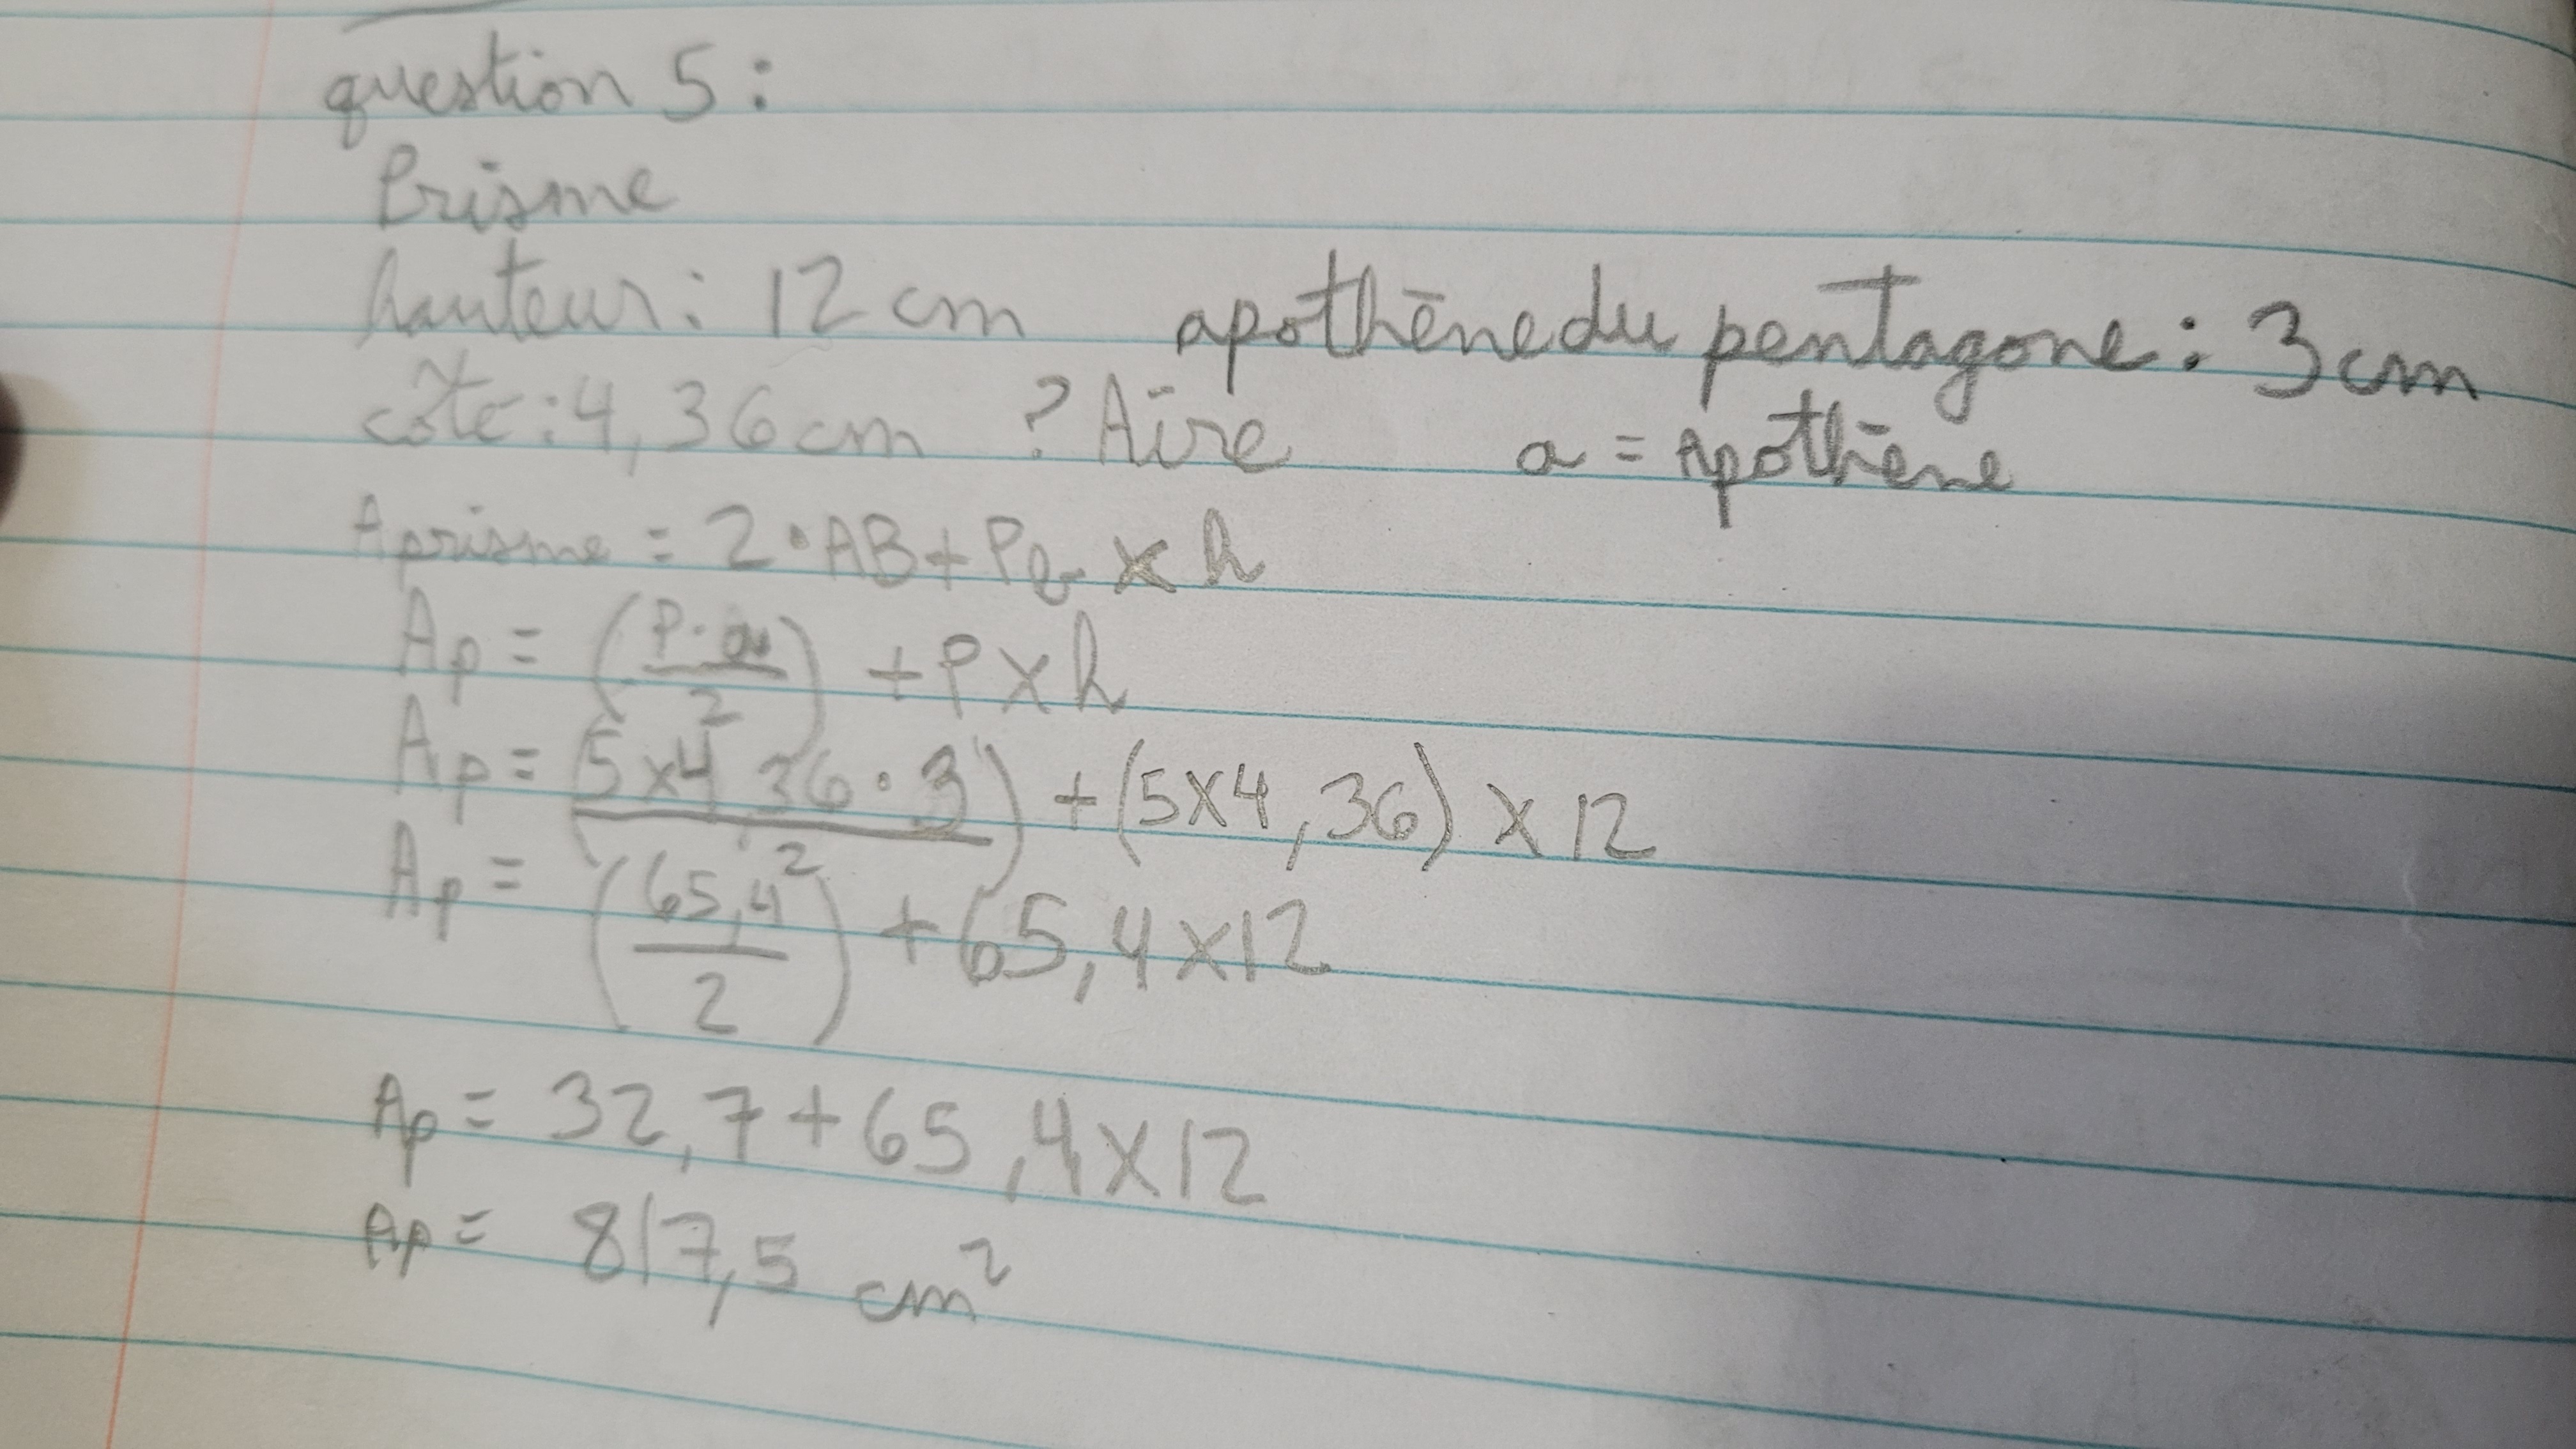 question 5 :
Prisme
hauteur : 12 cm apothēne du pentagone : 3 cm
côte : 4,36 cm ? Aire a = Apothēne
Aprisme = 2 • AB + Pb × h
Ap = (P · a / 2) + P × h
Ap = (5 × 4,36 · 3 / 2) + (5 × 4,36) × 12
Ap = (65,4 / 2) + 65,4 × 12
Ap = 32,7 + 65,4 × 12
Ap = 817,5 cm²